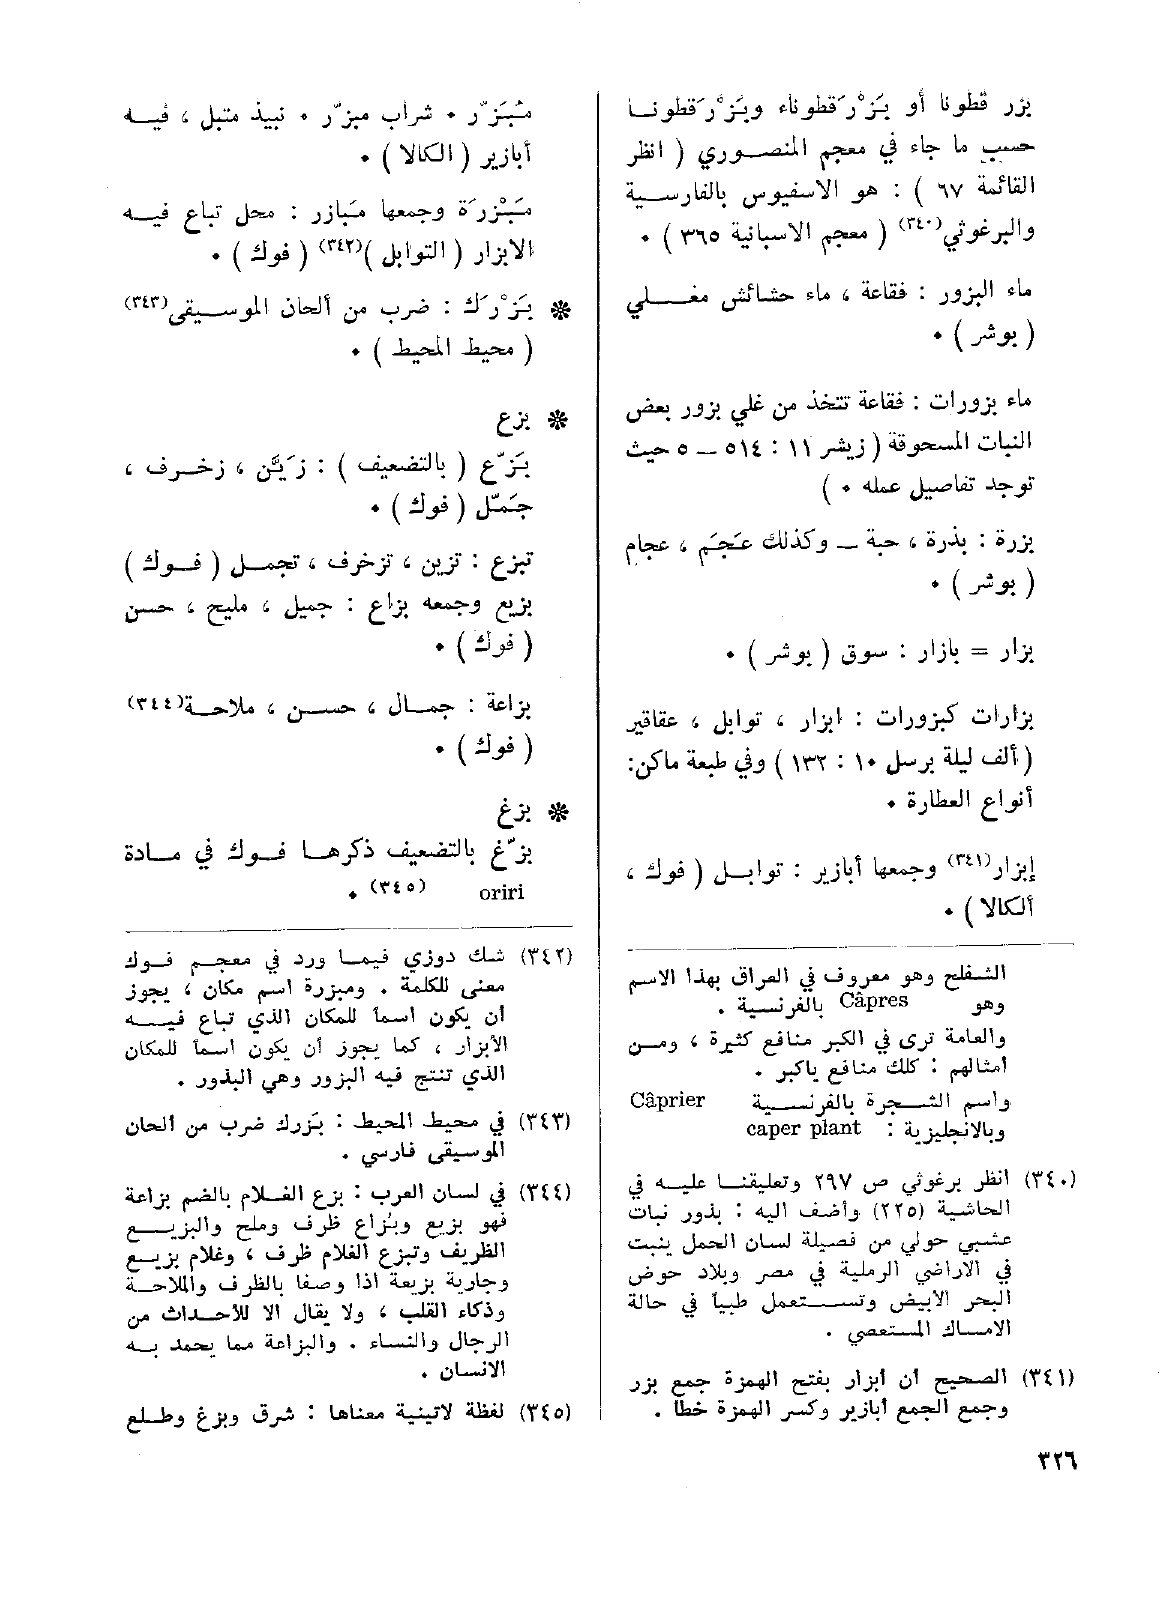 بزر قطونا أو بَزْرَقطوناء وبَزْرَقطونا
حسب ما جاء في معجم المنصوري ( انظر
القائمة ٦٧ ) : هو الاسفيوس بالفارسية
والبرغوثي(٣٤٠) ( معجم الاسبانية ٣٦٥ ) ٠
ماء البزور : فقاعة ، ماء حشائش مغلي
( بوشر ) ٠
ماء بزورات : فقاعة تتخذ من غلي بزور بعض
النبات المسحوقة ( زيشر ١١ : ٥١٤ – ٥ حيث
توجد تفاصيل عمله ٠ )
بزرة : بذرة ، حبة – وكذلك عَجَم ، عجام
( بوشر ) ٠
بزار = بازار : سوق ( بوشر ) ٠
بزارات كبزورات : ابزار ، توابل ، عقاقير
( ألف ليلة برسل ١٠ : ١٣٢ ) وفي طبعة ماكن:
أنواع العطارة ٠
إبزار(٣٤١) وجمعها أبازير : توابل ( فوك ،
ألكالا ) ٠
الشفلح وهو معروف في العراق بهذا الاسم
وهو Câpres بالفرنسية .
والعامة ترى في الكبر منافع كثيرة ، ومن
امثالهم : كلك منافع ياكبر .
واسم الشجرة بالفرنسية Câprier
وبالانجليزية : caper plant
(٣٤٠) انظر برغوثي ص ٢٩٧ وتعليقنا عليه في
الحاشية (٢٢٥) وأضف اليه : بذور نبات
عشبي حولي من فصيلة لسان الحمل ينبت
في الاراضي الرملية في مصر وبلاد حوض
البحر الابيض وتستعمل طبياً في حالة
الامساك المستعصي .
(٣٤١) الصحيح ان ابزار بفتح الهمزة جمع بزر
وجمع الجمع أبازير وكسر الهمزة خطأ .
مُبَزّر ٠ شراب مبزّر ٠ نبيذ متبل ، فيه
أبازير ( الكالا ) ٠
مَبْزرَة وجمعها مَبازر : محل تباع فيه
الابزار ( التوابل )(٣٤٢) ( فوك ) ٠
❋ بَزْرَك : ضرب من ألحان الموسيقى(٣٤٣)
( محيط المحيط ) ٠
❋ بزع
بَزّع ( بالتضعيف ) : زَيَّن ، زخرف ،
جَمّل ( فوك ) ٠
تبزع : تزين ، تزخرف ، تجمل ( فوك )
بزيع وجمعه بزاع : جميل ، مليح ، حسن
( فوك ) ٠
بزاعة : جمال ، حسن ، ملاحة(٣٤٤)
( فوك ) ٠
❋ بزغ
بزّغ بالتضعيف ذكرها فوك في مادة
oriri (٣٤٥) .
(٣٤٢) شك دوزي فيما ورد في معجم فوك
معنى للكلمة . ومبزرة اسم مكان ، يجوز
أن يكون اسماً للمكان الذي تباع فيه
الأبزار ، كما يجوز أن يكون اسماً للمكان
الذي تنتج فيه البزور وهي البذور .
(٣٤٣) في محيط المحيط : بَزرك ضرب من الحان
الموسيقى فارسي .
(٣٤٤) في لسان العرب : بزع الغلام بالضم بزاعة
فهو بزيع وبُزاع ظرف وملح والبزيع
الظريف وتبزع الغلام ظرف ، وغلام بزيع
وجارية بزيعة اذا وصفا بالظرف والملاحة
وذكاء القلب ، ولا يقال الا للأحداث من
الرجال والنساء . والبزاعة مما يحمد به
الانسان .
(٣٤٥) لفظة لاتينية معناها : شرق وبزغ وطلع
٣٢٦